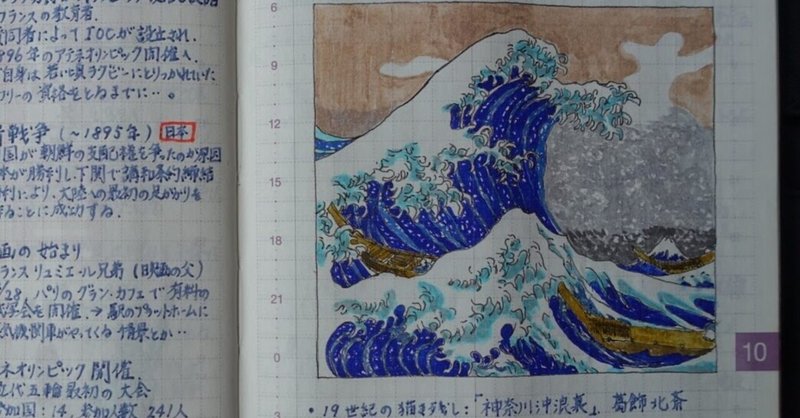 フランスの教育者.
賛同者によってIOCが設立され.
96年のアテネオリンピック開催へ.
自身は若い頃ラグビーにとりつかれていた
フリーの資格をとるまでに…。
戦争(~1895年) 日本
国が朝鮮の支配権を争ったのが原因
が勝利し下関で講和条約締結
利により、大陸への最初の足がかりを
ることに成功する.
画の始まり
ランス リュミエール兄弟(映画の父)
/28. パリのグラン・カフェで有料の
を開催. → 駅のプラットホームに
気機関車がやってくる情景とか…
ネオリンピック開催
近代五輪最初の大会
参加国:14. 参加人数 241人
6
9
12
15
18
21
0
3
10
・19世紀の描き残し:「神奈川沖浪裏」葛飾北斎